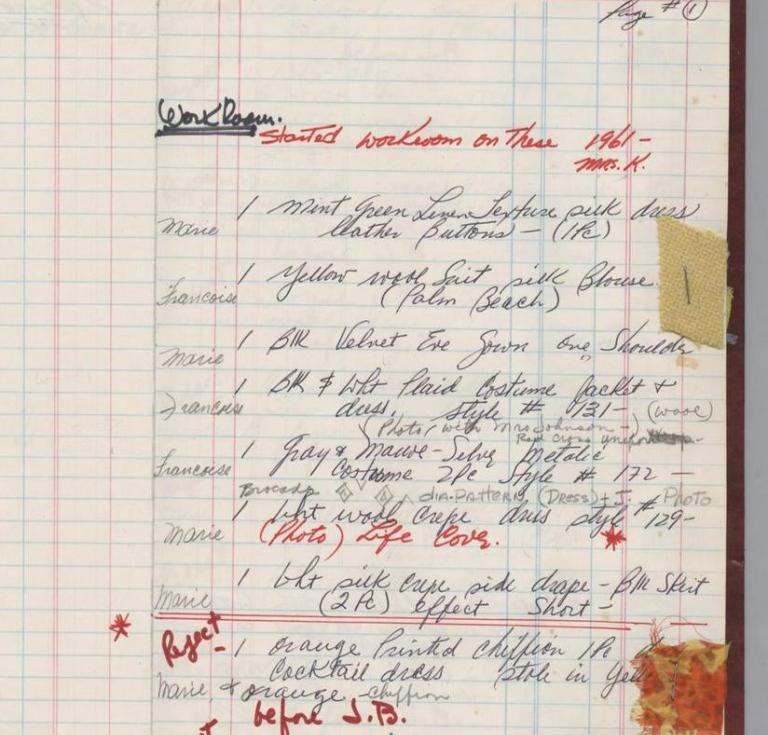 Page # 1
Work Room.
Started workroom on These 1961 -
Mrs. K.
1 Mint Green Linen Texture silk dress
Marie leather Buttons - (1Pc)
1 Yellow wool Suit silk Blouse
Francoise (Palm Beach)
1 Blk Velvet Eve Gown One Shoulder
Marie
1 Blk & Wht Plaid Costume Jacket &
Francoise dress, style # 131 - (wool)
(Photo, with Mrs Johnson -)
Red Cross
1 Gray & Mauve - Silver Metalic
Francoise Costume 2Pc Style # 172 -
Brocade dia-Pattern (Dress) + J. Photo
1 Wht wool crepe dress style # 129 -
Marie (Photo) Life Cover. *
1 Wht silk crepe side drape - Blk Skirt
Marie (2Pc) effect Short -
* Reject - 1 orange Printed chiffon 1Pc
Cocktail dress Stole in
Marie & orange - chiffon
before J.B.
1